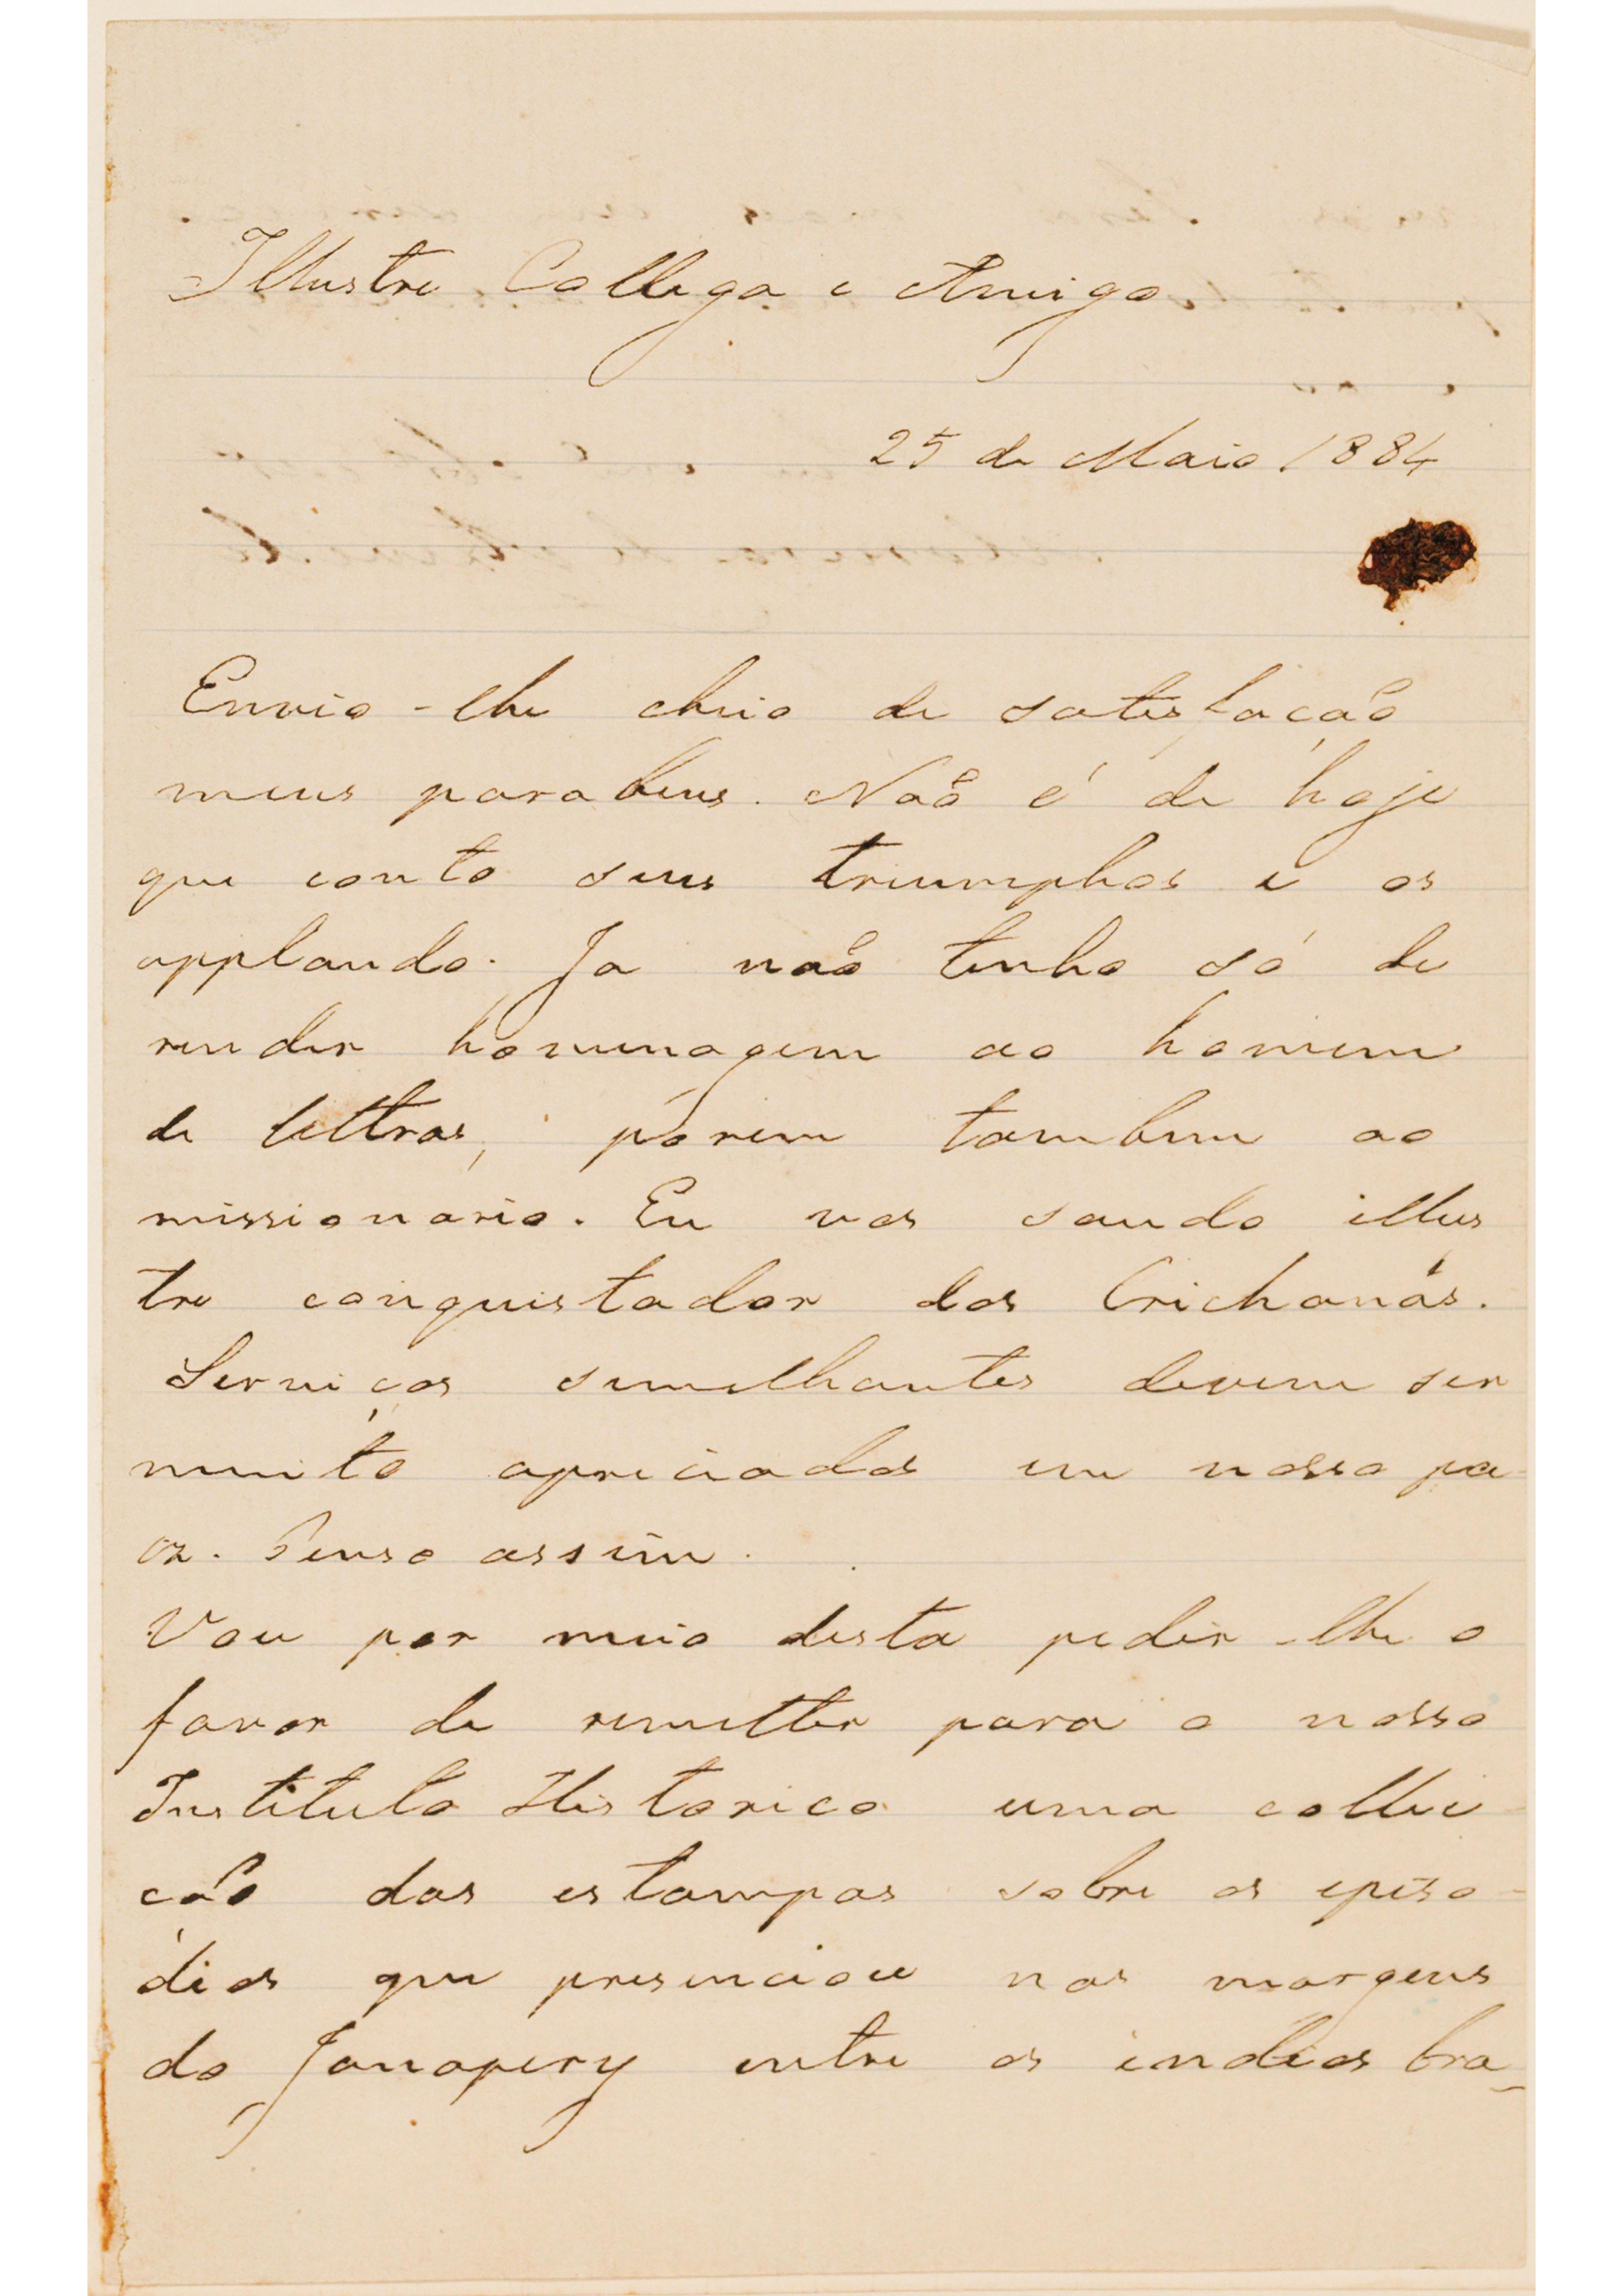 Illustre Collega e Amigo
25 de Maio 1884
Envio-lhe cheio de satisfação
meus parabens. Não é de hoje
que conto seus triumphos e os
applaudo. Ja não tenho só de
render homenagem ao homem
de lettras, porem tambem ao
missionario. Eu vos saudo illus
tre conquistador dos Crichanás.
Serviços semelhantes devem ser
muito apreciados em nosso pa
iz. Penso assim.
Vou por meio desta pedir-lhe o
favor de remetter para o nosso
Instituto Historico uma collec
ção das estampas sobre os episo-
dios que presenciou nas margens
do Jauapery entre os indios bra-